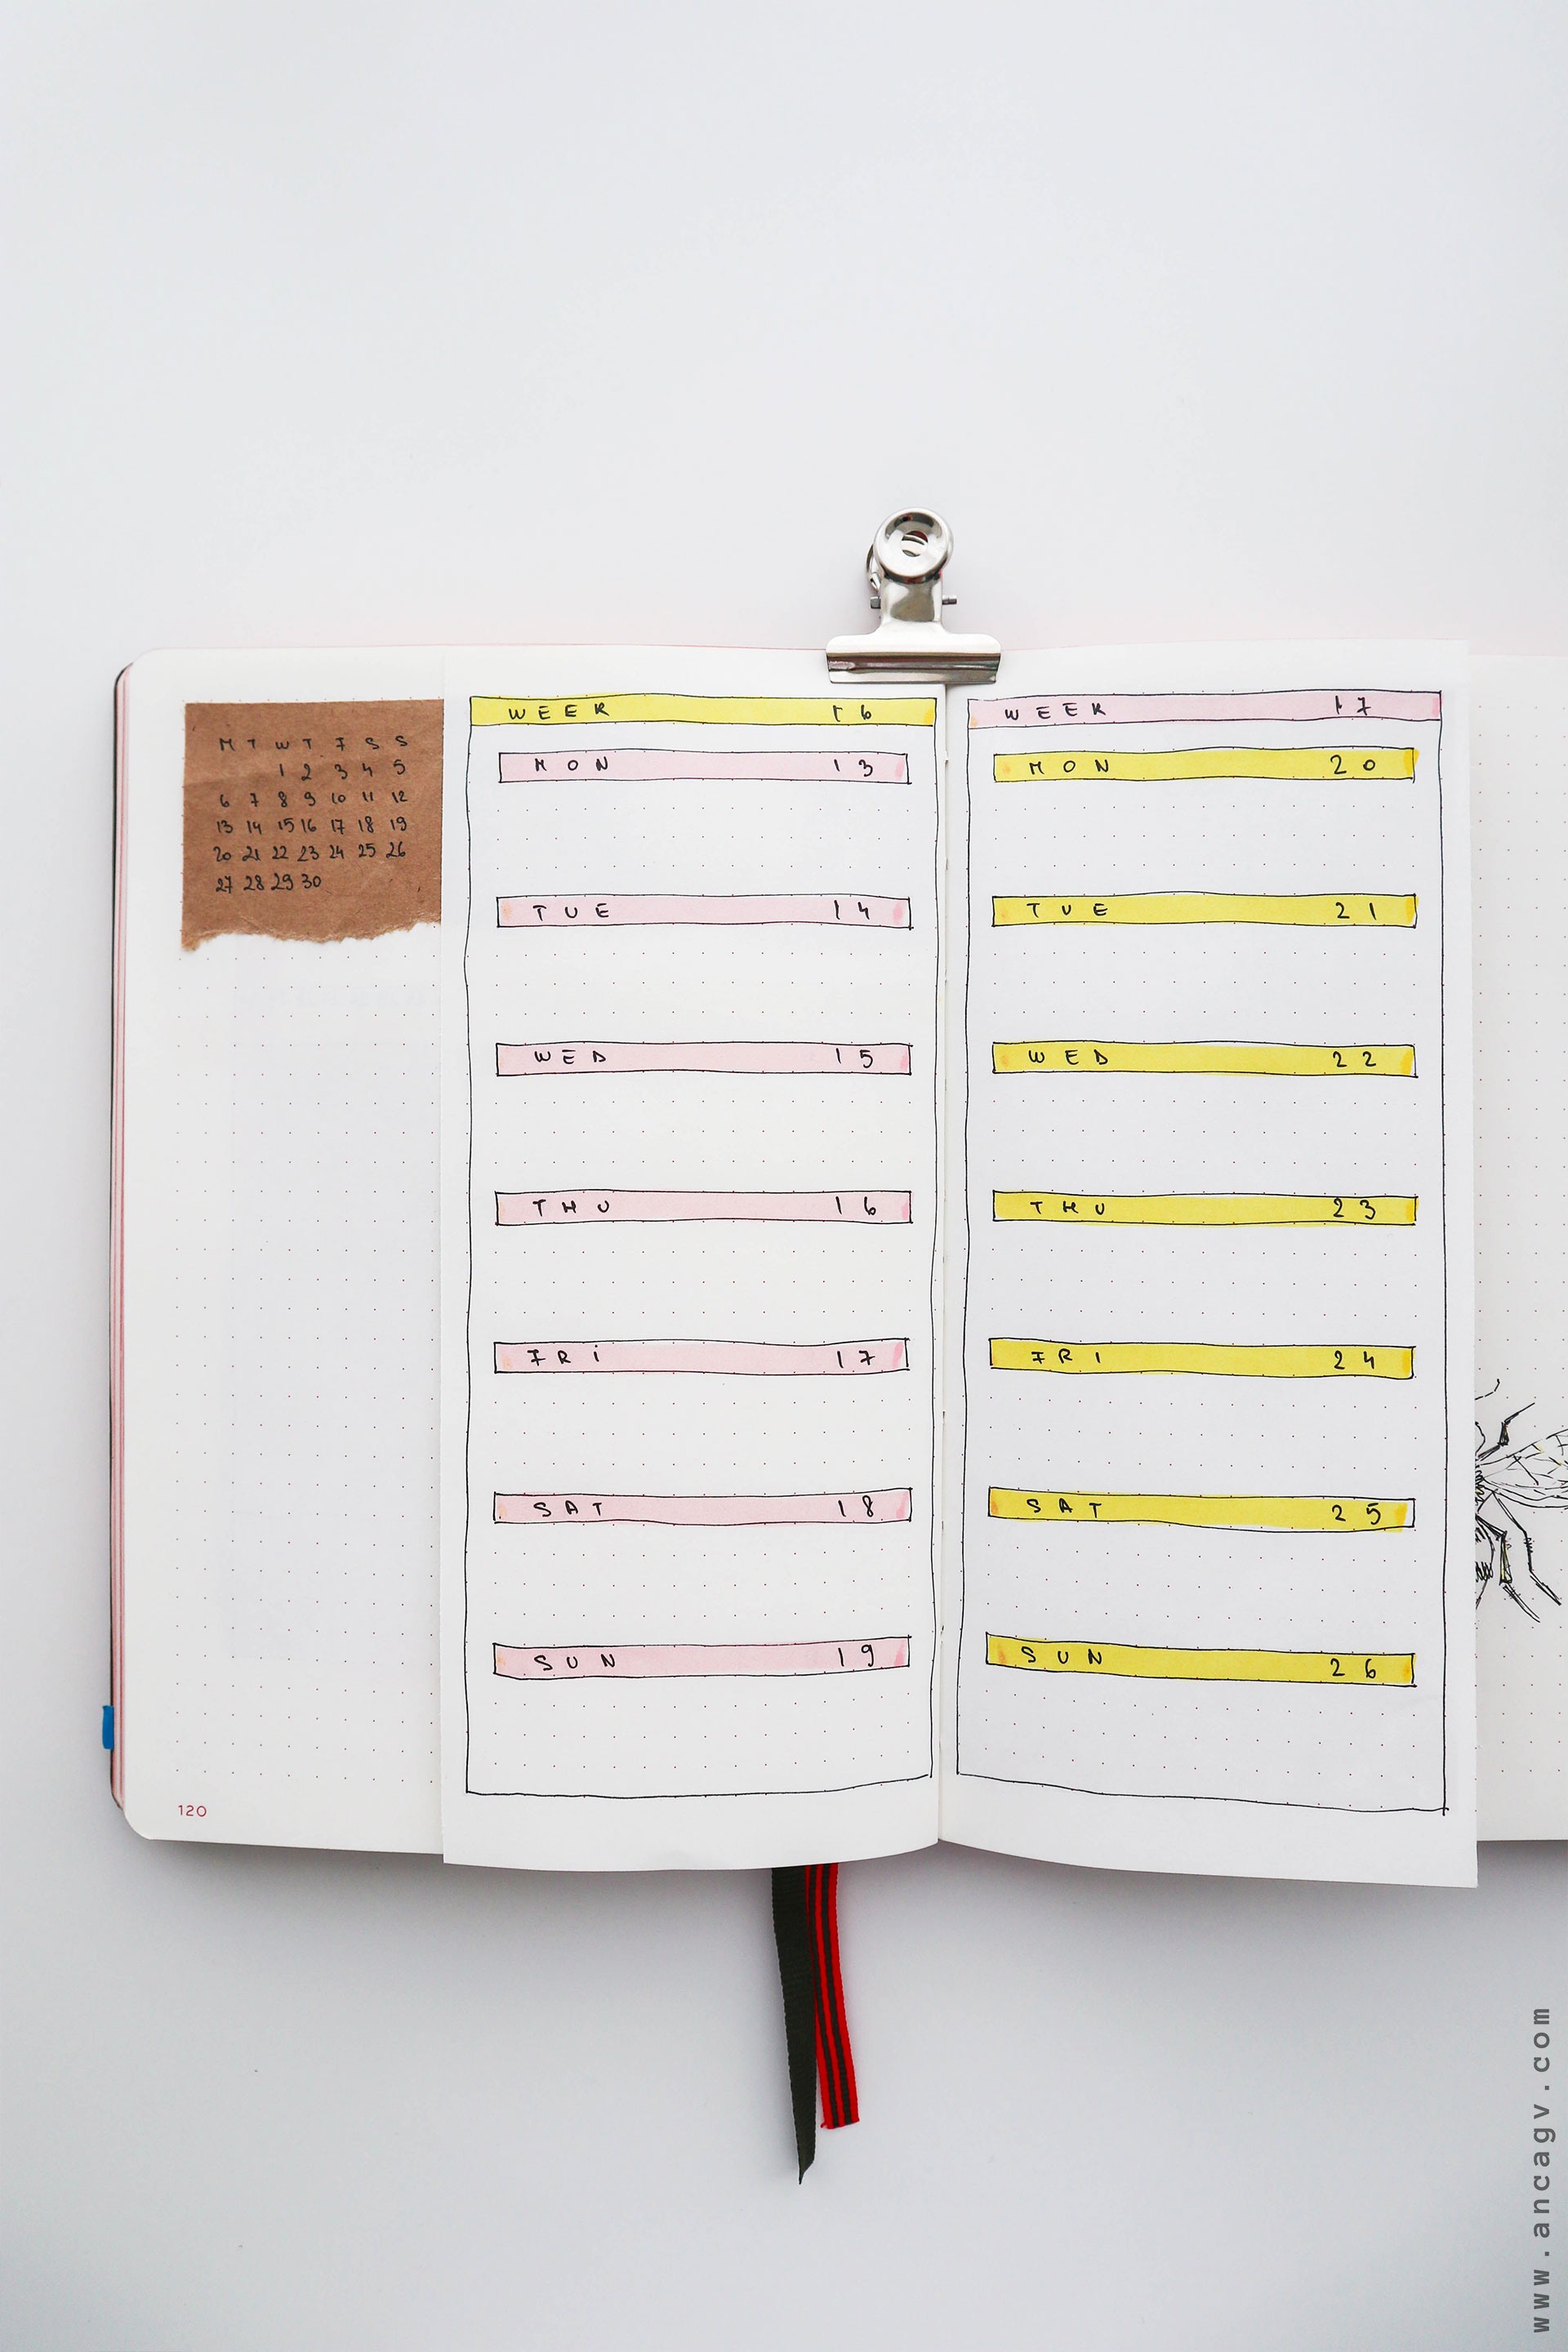 M T W T F S S
1 2 3 4 5
6 7 8 9 10 11 12
13 14 15 16 17 18 19
20 21 22 23 24 25 26
27 28 29 30
120
WEEK 16
MON 13
TUE 14
WED 15
THU 16
FRi 17
SAT 18
SUN 19
WEEK 17
MON 20
TUE 21
WED 22
THU 23
FRI 24
SAT 25
SUN 26
www.ancagv.com